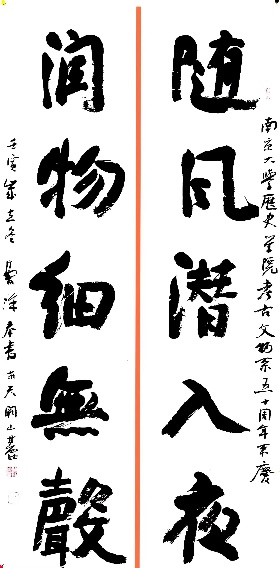 随风潜入夜
南京大學歷史學院考古文物系五十周年系慶
润物细無聲
壬寅歲立冬